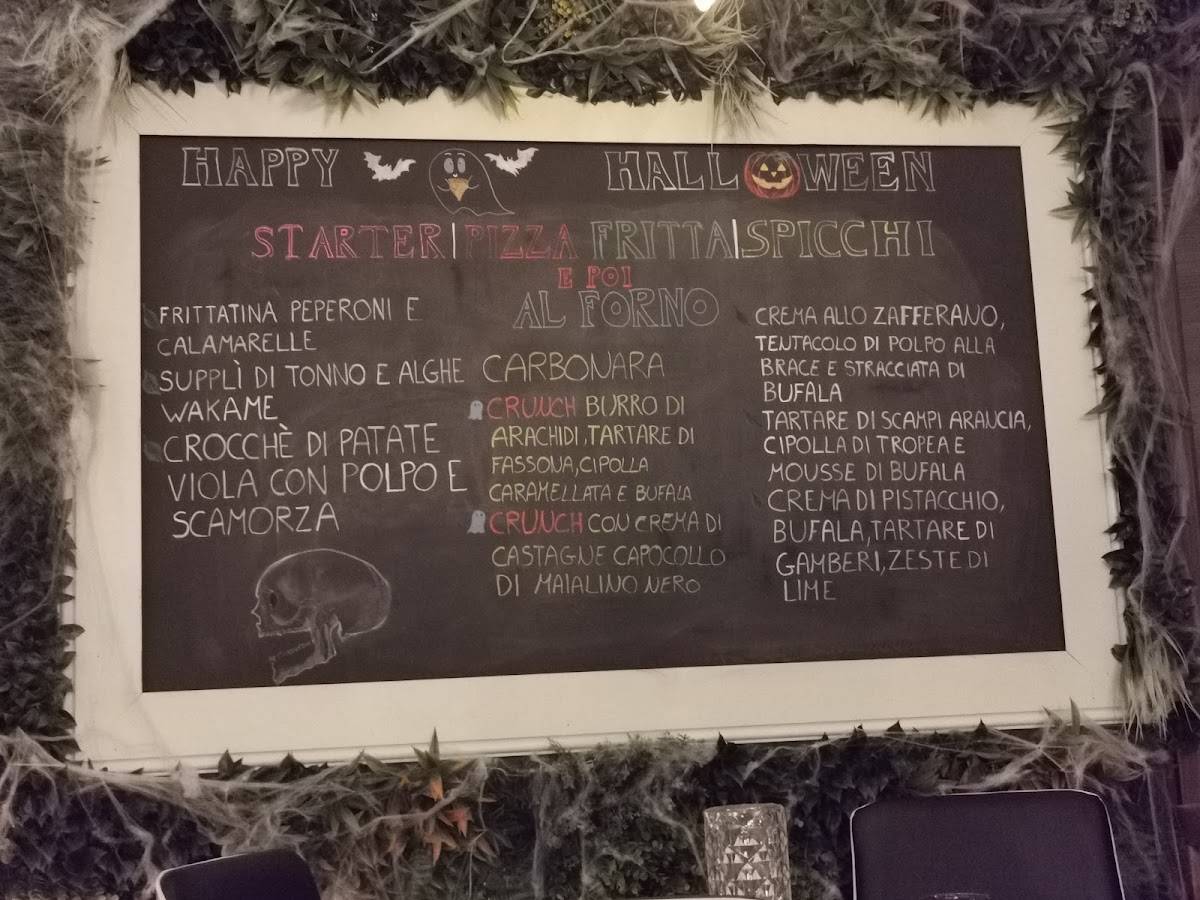 HAPPY HALLOWEEN
STARTER | PIZZA FRITTA | SPICCHI
E POI
AL FORNO
FRITTATINA PEPERONI E
CALAMARELLE
SUPPLÌ DI TONNO E ALGHE
WAKAME
CROCCHÈ DI PATATE
VIOLA CON POLPO E
SCAMORZA
CARBONARA
CRUNCH BURRO DI
ARACHIDI, TARTARE DI
FASSONA, CIPOLLA
CARAMELLATA E BUFALA
CRUNCH CON CREMA DI
CASTAGNE CAPOCOLLO
DI MAIALINO NERO
CREMA ALLO ZAFFERANO,
TENTACOLO DI POLPO ALLA
BRACE E STRACCIATA DI
BUFALA
TARTARE DI SCAMPI ARANCIA,
CIPOLLA DI TROPEA E
MOUSSE DI BUFALA
CREMA DI PISTACCHIO,
BUFALA, TARTARE DI
GAMBERI, ZESTE DI
LIME